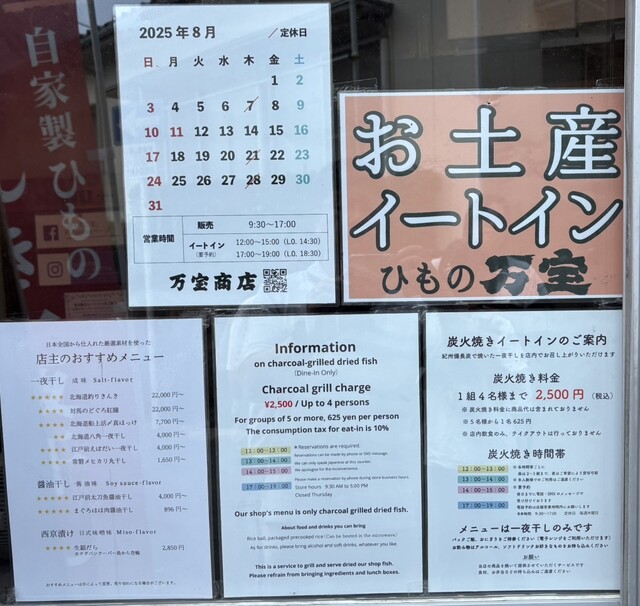 自家製ひもの
2025年8月 ／定休日
日 月 火 水 木 金 土
1 2
3 4 5 6 7 8 9
10 11 12 13 14 15 16
17 18 19 20 21 22 23
24 25 26 27 28 29 30
31
営業時間
販売 9:30〜17:00
イートイン 12:00〜15:00 (L.O. 14:30)
(要予約) 17:00〜19:00 (L.O. 18:30)
万宝商店
お土産
イートイン
ひもの 万宝
日本全国から仕入れた厳選素材を使った
店主のおすすめメニュー
一夜干し 咸味 Salt-flavor
★★★★★ 北海道釣りきんき 22,000円〜
★★★★★ 対馬のどぐろ紅瞳 22,000円〜
北海道船上活〆真ほっけ 7,700円〜
北海道八角一夜干し 4,000円〜
江戸前太ぼだい一夜干し 4,000円〜
常磐メヒカリ丸干し 1,650円〜
醤油干し 酱油味 Soy sauce-flavor
江戸前太刀魚醤油干し 4,000円〜
まぐろほほ肉醤油干し 896円〜
西京漬け 日式味噌味 Miso-flavor
生銀だら 2,850円〜
Information
on charcoal-grilled dried fish
(Dine-in Only)
Charcoal grill charge
¥2,500 / Up to 4 persons
For groups of 5 or more, 625 yen per person
The consumption tax for eat-in is 10%
12：00〜13：00
13：00〜14：00
14：00〜15：00
17：00〜19：00
＊Reservations are required.
Reservations can be made by phone or SNS message.
We can only speak Japanese at this counter.
We apologize for the inconvenience.
Please make a reservation by phone during store business hours.
Store hours 9:30 AM to 5:00 PM
Closed Thursday
Our shop's menu is only charcoal grilled dried fish.
About food and drinks you can bring
Rice ball, packaged precooked rice (Can be heated in the microwave)
As for drinks, please bring alcohol and soft drinks, whatever you like.
This is a service for grill and serve dried our shop fish.
Please refrain from bringing ingredients and lunch boxes.
炭火焼きイートインのご案内
紀州備長炭で焼いた一夜干しを店内でお召し上がりいただけます
炭火焼き料金
1組4名様まで 2,500円 (税込)
※ 炭火焼き料金に商品代は含まれておりません
※ 5名様から1名625円
※ 店内飲食のみ、テイクアウトは行っておりません
炭火焼き時間帯
12：00〜13：00
13：00〜14：00
14：00〜15：00
17：00〜19：00
メニューは一夜干しのみです
パックご飯、おにぎりをご持参ください（電子レンジをご利用いただけます）
お飲み物はアルコール、ソフトドリンクお好きなものをお持ち込みください
お願い
当店の商品を焼いて提供させていただくサービスです
食材、お弁当などの持ち込みはご遠慮ください